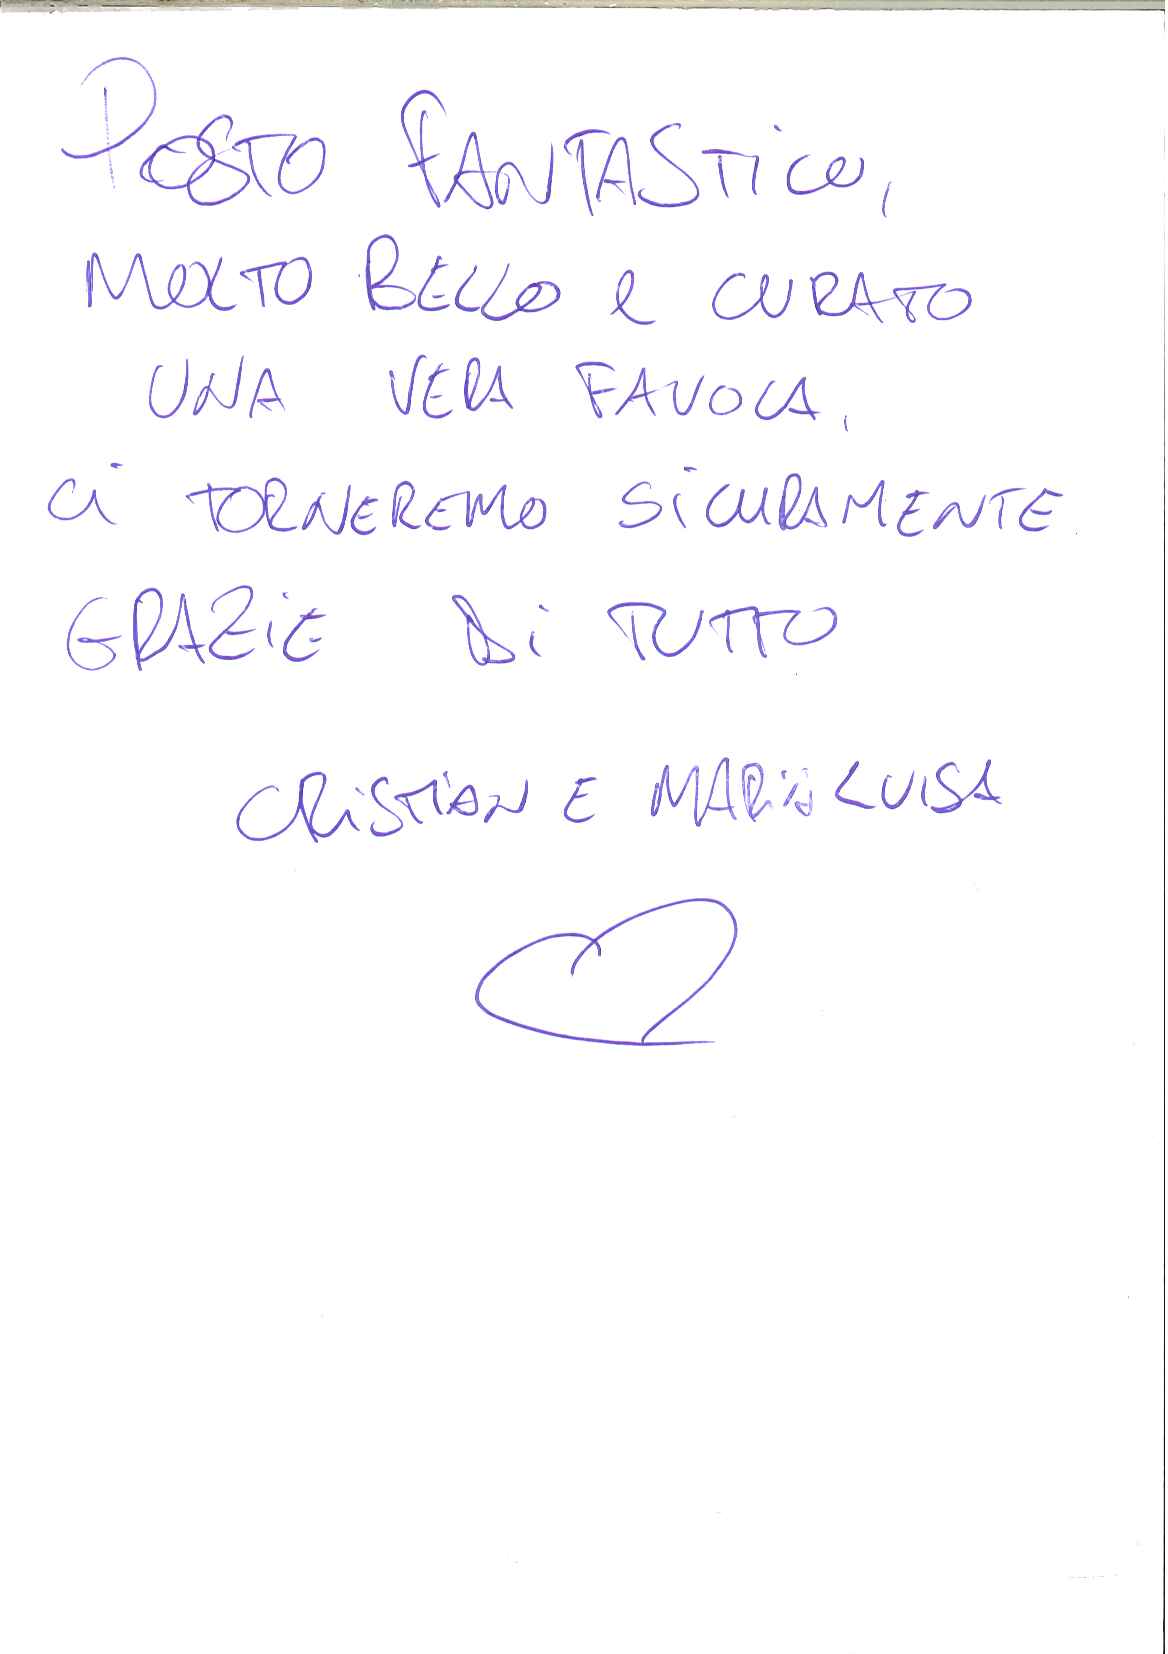 POSTO FANTASTICO,
MOLTO BELLO e CURATO
UNA VERA FAVOLA,
Ci TORNEREMO SiCURAMENTE
GRAZiE Di TUTTO
CRiSTiAN E MARiA LUiSA